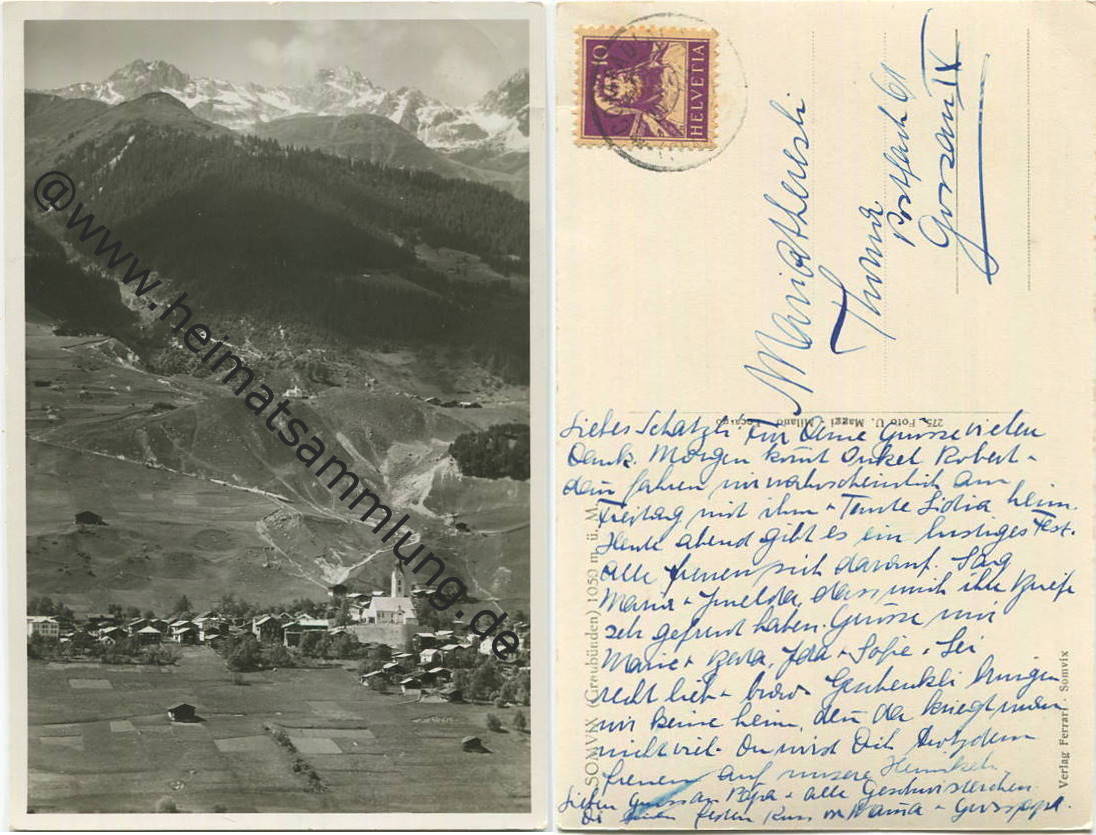 @www.heimatsammlung.de
10
HELVETIA
Mariatheresli
Thoma
Postfach 61
Gossau
275, Foto U. Maggi - Milano
SOMVIX (Graubünden) 1050 m ü. M.
Verlag Ferrari - Somvix
Liebes Schatzli. Für Deine Grüsse vielen
Dank. Morgen komt Onkel Robert -
dan fahren wir wahrscheinlich am
Freitag mit ihm + Tante Lidia heim.
Heute abend gibt es ein lustiges Fest.
Alle freuen sich darauf. Sag
Maria + Imelda, dass mich ihre Briefe
sehr gefreut haben. Grüsse mir
Marie + Berta, Ida + Sofie. Sei
recht lieb + brav. Geschenkli bringen
wir keine heim, den da kriegt man
nicht viel. Du wirst Dich trotzdem
freuen auf unsere Heimkehr
Lieben Gruss an Papa + alle Geschwisterchen
festen Kuss von Mama + Grosspapa.